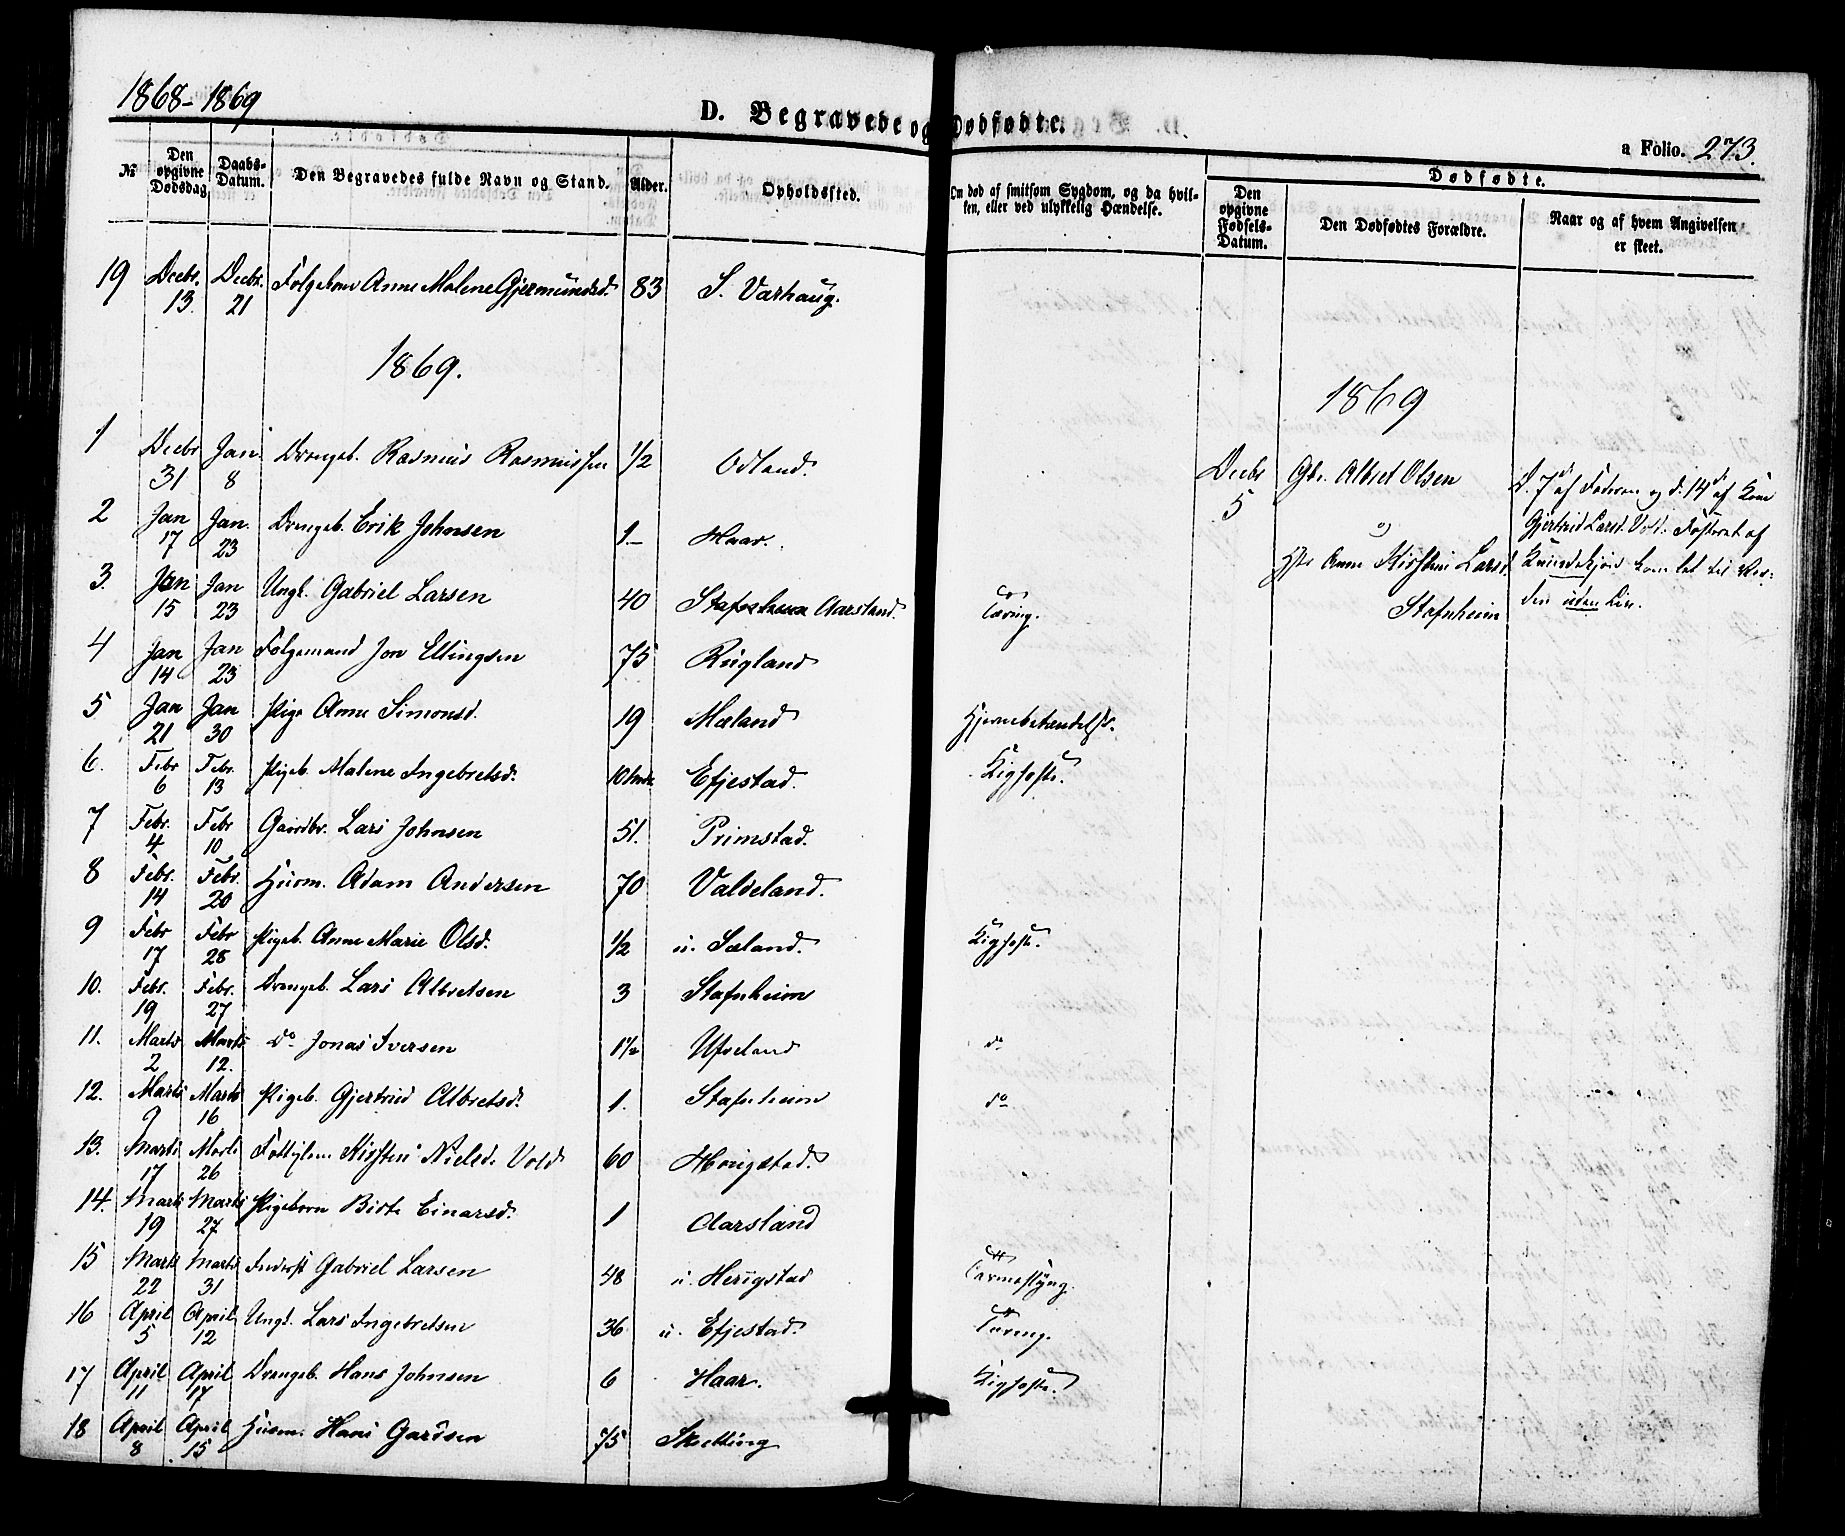 1868-1869
D. Begravede og Dødfødte.
a Folio. 273.
№ Den opgivne Dødsdag. Daabs-Datum. Den Begravedes fulde Navn og Stand. Alder. Opholdssted. Om død af smitsom Sygdom, og da hvilken, eller ved ulykkelig Hændelse.
Dødfødte.
Den opgivne Fødsels-Datum. Den Dødfødtes Forældre. Naar og af hvem Angivelsen er skeet.
19 Decbr. 13. Decbr. 21 Følgekone Anne Malene Gjermundsd. 83 S. Varhaug.
1869.
1 Decbr 31 Jan. 8 Drengeb. Rasmus Rasmussen 1/2 Odland.
2 Jan 17 Jan. 23 Drengeb. Erik Johnsen 1 Haar.
3. Jan 15 Jan 23 Ungk. Gabriel Larsen 40 Aarsland. Tæring.
4 Jan 14 Jan 23 Følgemand Jon Ellingsen 75 Rugland
5 Jan 21 Jan 30 Pige Anne Simonsd. 19 Mæland Hjernebetændelse.
6. Febr 6 Febr. 13 Pigeb. Malene Ingebretsd. 10 Efjestad. Kighoste.
7 Febr. 4 Febr 10 Gaardbr. Lars Johnsen 51. Primstad.
8 Febr. 14 Febr. 20 Husm. Adam Andersen 70 Valdeland.
9 Febr 17 Febr 28 Pigeb. Anne Marie Olsd. 1/2 u. Sæland. Kighoste.
10. Febr. 19 Febr. 27 Drengeb. Lars Albretsen 3 Stafnheim
11. Marts 2 Marts 12. do Jonas Iversen 1 1/2 Ufseland do
12. Marts 9 Marts 16 Pigeb. Gjertrud Albretsd. 1. Stafnheim do
13. Marts 17 Marts 26 Kirsten Nielsd. Vold 60 Hongstad.
14. Marts 19 Marts 27 Pigebarn Birte Einarsd. 1 Aarsland
15 Marts 22 Marts 31 Gabriel Larsen 48 u. Herigstad Tarmeslyng.
16 April 5 April 12 Ungk. Lars Ingebretsen 36 u. Efjestad. Tæring.
17 April 11 April 17 Drengeb. Hans Johnsen 6 Haar. Kighoste.
18 April 8 April 15 Husm. Hans Gardsen 75 Skretting
1869
Decbr 5 Gbr. Albret Olsen
og
Hstr Anne Kirstine Larsd.
Stafnheim
D. 7de af Faderen og d. 14de af Kone
Gjertrud Larsd. Vold. Fosteret af
Kvindekjøn kom let til Ver-
den uden Liv.